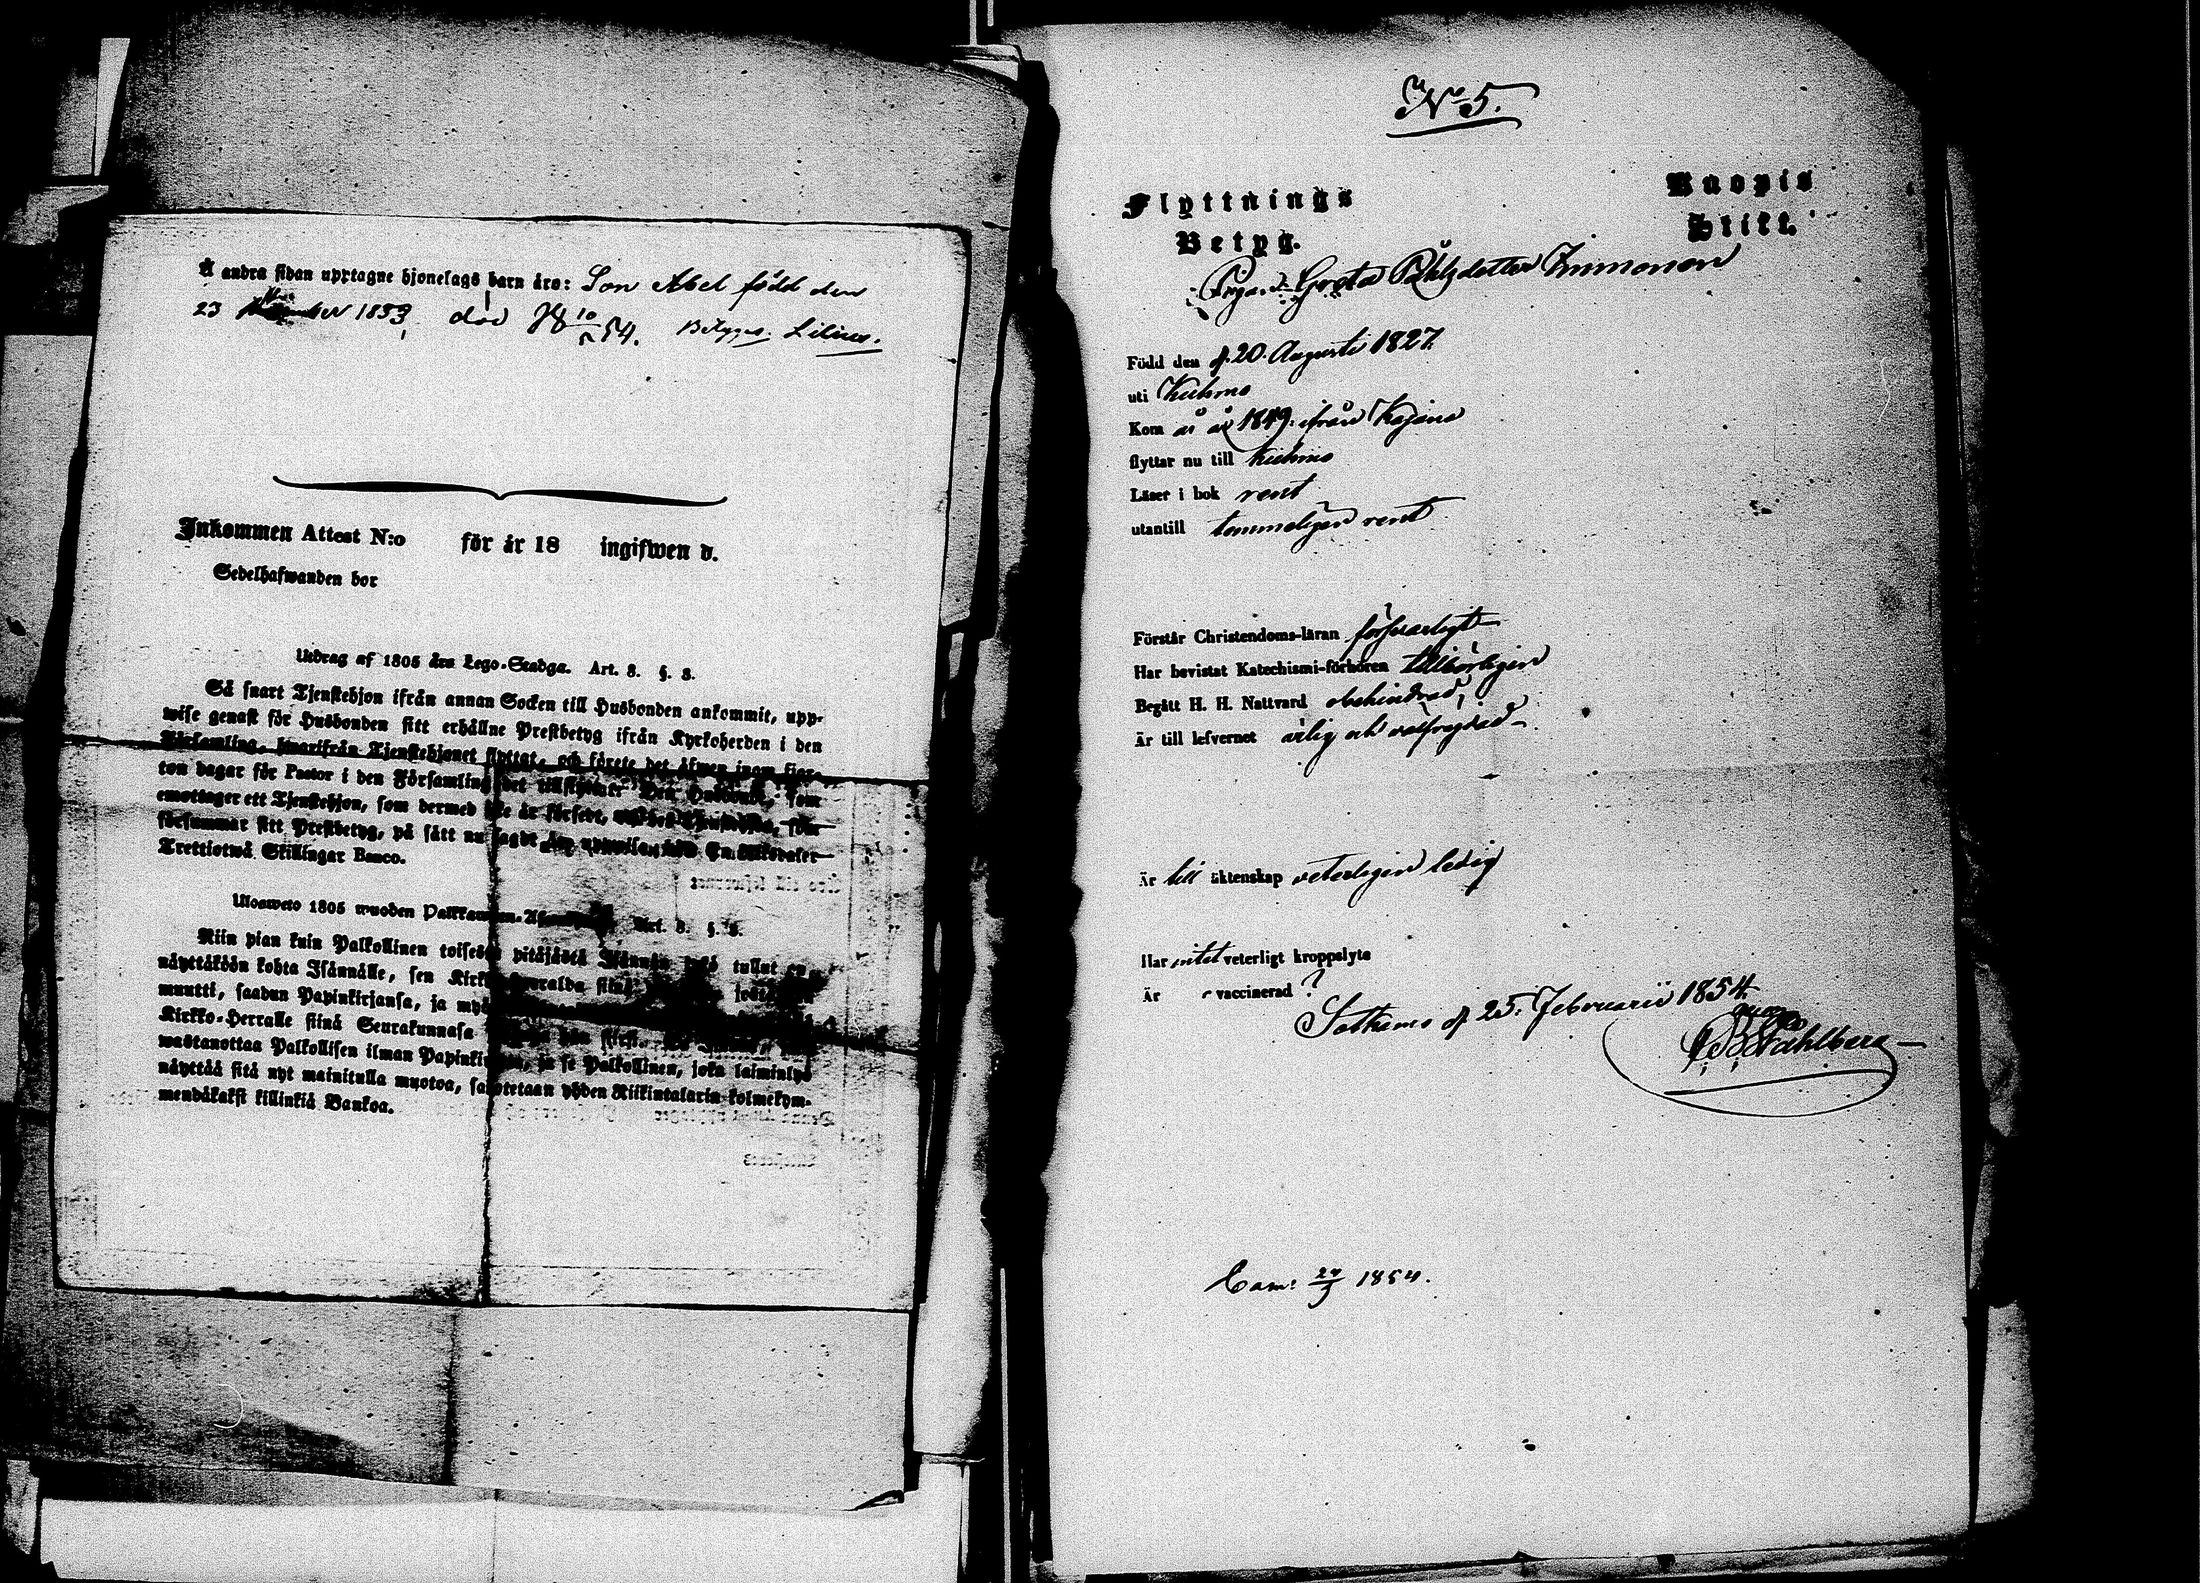 Å andra sidan upptagne hjonelags barn äro: Son Abel född den
23 1853, död 18 10/5 54. Betygas Lilius.
Inkommen Attest N:o för år 18 ingifwen d.
Sedelhafwanden bor
Utdrag af 1805 års Lego-Stadga. Art. 8. §. 8.
Så snart Tjenstehjon ifrån annan Socken till Husbonden ankommit, upp-
wise genast för Husbonden sitt erhållne Prestbetyg ifrån Kyrkoherden i den
Församling, hwarifrån Tjenstehjonet flyttat, och förete det äfwen inom fjor-
ton dagar för Pastor i den Församling det tillflyttat. Den Husbonde, som
emottager ett Tjenstehjon, som dermed är försedt, det Tjenstehjon, som
försummar sitt Prestbetyg, på sätt nu sagdt är, uppwisa, böte En Riksdaler
Trettiotwå Skillingar Banco.
Ulosweto 1805 wuoden Palkkawäen- Art. 8. §. 8.
Niin pian kuin Palkollinen toisesta pitäjästä Isännän tullut on,
näyttäköön kohta Isännälle, sen Kirkkoherralda siinä
muutti, saadun Papinkirjansa, ja myös
Kirkko-Herralle siinä Seurakunnasa
wastanottaa Palkollisen ilman Papinkirjaa, ja se Palkollinen, joka laiminlyö
näyttää sitä nyt mainitulla muotoa, sakotetaan yhden Riikintalarin kolmekym-
mendäkaksi killinkiä Bankoa.
N:o 5.
Flyttnings Kuopio
Betyg. Stift.
Pigan Greta Påhlsdotter Immonen
Född den d. 20. Augusti 1827.
uti Kuhmo
Kom år 1849. ifrån Kajana
flyttar nu till Kuhmo
Läser i bok rent
utantill temmeligen rent
Förstår Christendoms-läran försvarligt
Har bevistat Katechismi-förhören tillbörligen
Begått H. H. Nattvard obehindrad,
Är till lefvernet ärlig och välfrejdad
Är till äktenskap veterligen ledig
Har intet veterligt kroppslyte
Är vaccinerad ?
Sotkamo d. 25. Februarii 1854.
Stahlberg
Cam: 24/3 1854.